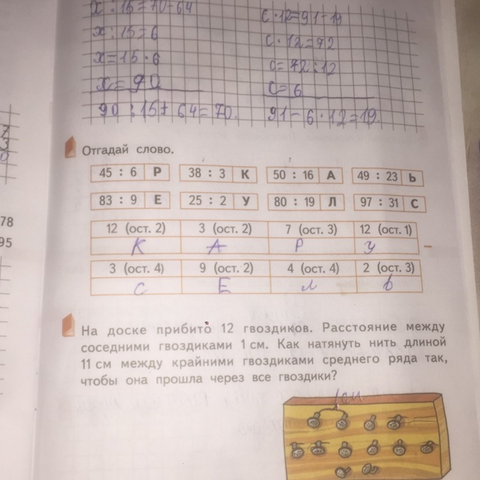 x : 15 = 70 - 64
c · 12 = 91 - 19
x : 15 = 6
c · 12 = 72
x = 15 · 6
c = 72 : 12
x = 90
c = 6
90 : 15 + 64 = 70.
91 - 6 · 12 = 19.
Отгадай слово.
45 : 6 Р 38 : 3 К 50 : 16 А 49 : 23 Ь
83 : 9 Е 25 : 2 У 80 : 19 Л 97 : 31 С
12 (ост. 2) 3 (ост. 2) 7 (ост. 3) 12 (ост. 1)
К А Р У
3 (ост. 4) 9 (ост. 2) 4 (ост. 4) 2 (ост. 3)
С Е л ь
78
95
На доске прибито 12 гвоздиков. Расстояние между
соседними гвоздиками 1 см. Как натянуть нить длиной
11 см между крайними гвоздиками среднего ряда так,
чтобы она прошла через все гвоздики?
1см